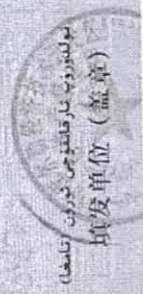 تولدۇرۇپ تارقاتقۇچى ئورۇن (تامغا)
填发单位（盖章）